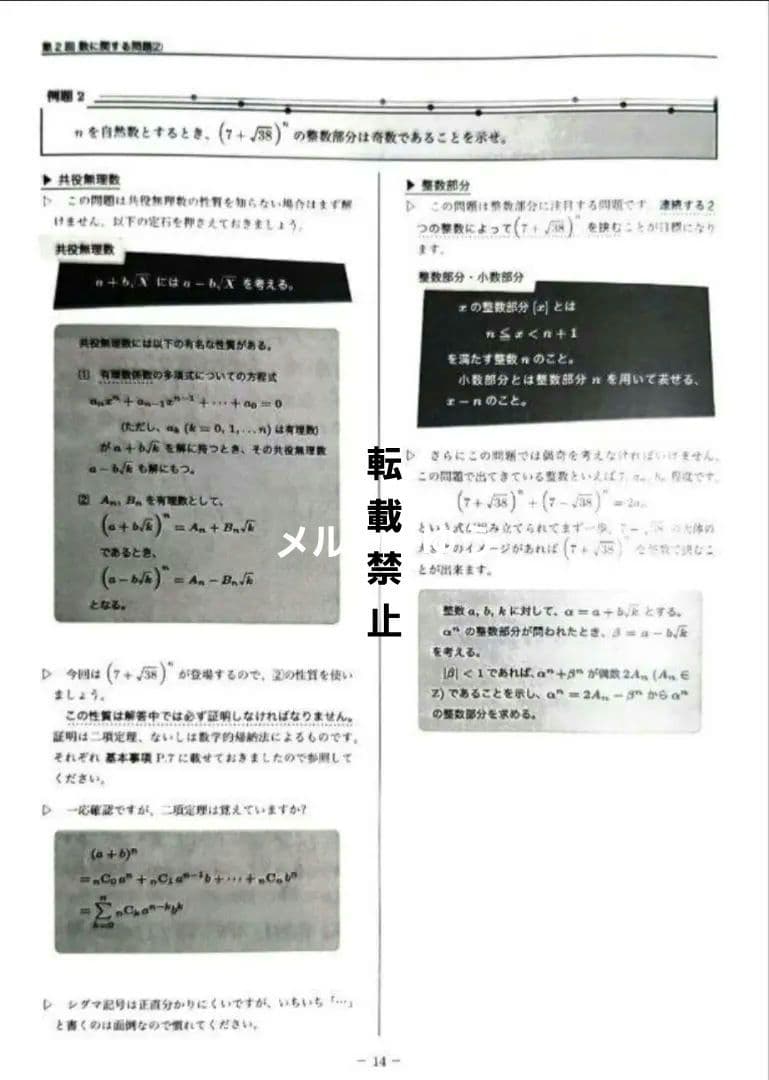 第2回 数に関する問題(2)
例題 2
n を自然数とするとき、(7+√38)^n の整数部分は奇数であることを示せ。
▶ 共役無理数
▷ この問題は共役無理数の性質を知らない場合はまず解
けません。以下の定石を押さえておきましょう。
共役無理数
a+b√X には a−b√X を考える。
共役無理数には以下の有名な性質がある。
(1) 有理数係数の多項式についての方程式
aₙxⁿ + aₙ₋₁xⁿ⁻¹ + ⋯ + a₀ = 0
(ただし、aₖ (k = 0, 1, … n) は有理数)
が a+b√k を解に持つとき、その共役無理数
a−b√k も解にもつ。
(2) Aₙ, Bₙ を有理数として、
(a+b√k)^n = Aₙ + Bₙ√k
であるとき、
(a−b√k)^n = Aₙ − Bₙ√k
となる。
▷ 今回は (7+√38)^n が登場するので、(2)の性質を使い
ましょう。
この性質は解答中では必ず証明しなければなりません。
証明は二項定理、ないしは数学的帰納法によるものです。
それぞれ 基本事項 P.7 に載せておきましたので参照して
ください。
▷ 一応確認ですが、二項定理は覚えていますか?
(a+b)ⁿ
= ₙC₀aⁿ + ₙC₁aⁿ⁻¹b + ⋯ + ₙCₙbⁿ
= Σ[k=0→n] ₙCₖaⁿ⁻ᵏbᵏ
▷ シグマ記号は正直分かりにくいですが、いちいち「…」
と書くのは面倒なので慣れてください。
▶ 整数部分
▷ この問題は整数部分に注目する問題です。連続する2
つの整数によって (7+√38)^n を挟むことが目標になり
ます。
整数部分・小数部分
x の整数部分 [x] とは
n ≦ x < n+1
を満たす整数 n のこと。
小数部分とは整数部分 n を用いて表せる、
x−n のこと。
▷ さらにこの問題では偶奇を考えなければいけません。
この問題で出てきている整数といえば 7, aₙ, bₙ 程度です。
(7+√38)^n + (7−√38)^n = 2aₙ
という式が組み立てられてまず一歩。7−√38 の大体の
のイメージがあれば (7+√38)^n を整数で挟むこ
とが出来ます。
整数 a, b, k に対して、α = a+b√k とする。
αⁿ の整数部分が問われたとき、β = a−b√k
を考える。
|β| < 1 であれば、αⁿ+βⁿ が偶数 2Aₙ (Aₙ ∈
Z) であることを示し、αⁿ = 2Aₙ − βⁿ から αⁿ
の整数部分を求める。
転載禁止
メル
− 14 −